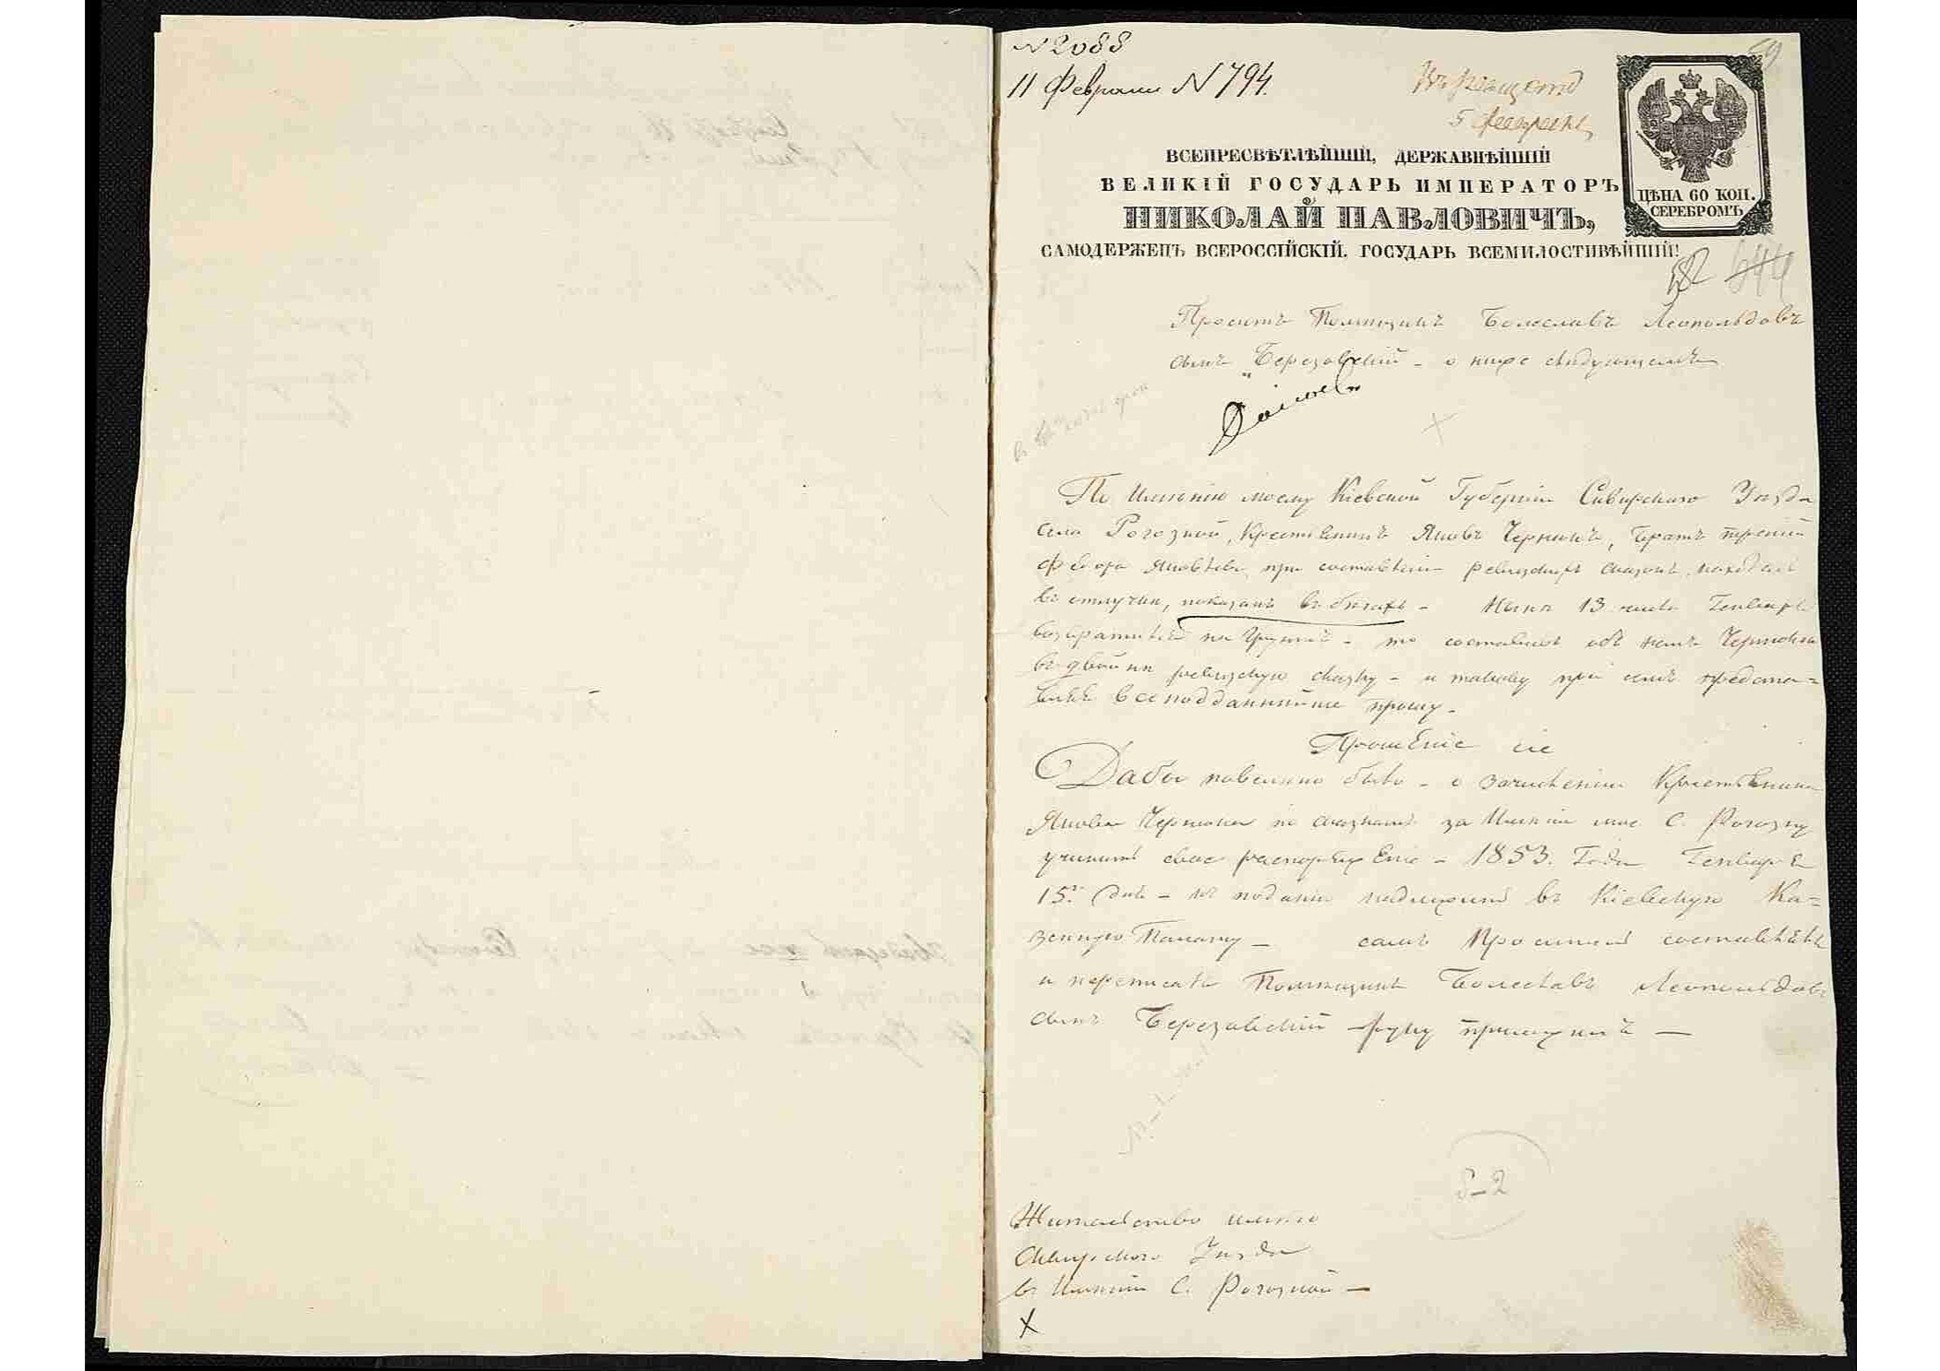 N 2088
59
11 Февраля N 794.
5 февраля
ВСЕПРЕСВѢТЛѢЙШІЙ, ДЕРЖАВНѢЙШІЙ
ВЕЛИКІЙ ГОСУДАРЬ ИМПЕРАТОРЪ
НИКОЛАЙ ПАВЛОВИЧЪ,
САМОДЕРЖЕЦЪ ВСЕРОССІЙСКІЙ, ГОСУДАРЬ ВСЕМИЛОСТИВѢЙШІЙ!
ЦѢНА 60 КОП.
СЕРЕБРОМЪ
Проситъ Помѣщикъ Болеславъ Леопольдовъ
сынъ Березовскій - о ниже слѣдующемъ
По Имѣнію моему Кіевской Губерніи Сквирскаго Уѣзда
села Рогозной, Крестьянинъ Яковъ Чернюкъ, братъ
при составленіи ревизскихъ сказокъ, находясь
въ отлучкѣ, показанъ въ бѣгахъ - Нынѣ 13 числа Генваря
возвратился - то составивъ объ немъ Чернюкѣ
въ двойнѣ ревизскую сказку - и такову при семъ представ=
ляя всеподданнѣйше прошу -
Прошеніе сіе
Дабы повелѣно было - о зачисленіи Крестьянина
Якова Чернюка по сказкамъ за Имѣніе мое С. Рогозну
учинить свое распоряженіе - 1853. Года Генваря
15го дня - къ поданію надлежитъ въ Кіевскую Ка=
зенную Палату - самъ Проситель составлялъ
и переписалъ Помѣщикъ Болеславъ Леопольдовъ
сынъ Березовскій руку приложилъ —
8-2
Жительство имѣю
Сквирскаго Уѣзда
въ Имѣніи С. Рогозной —